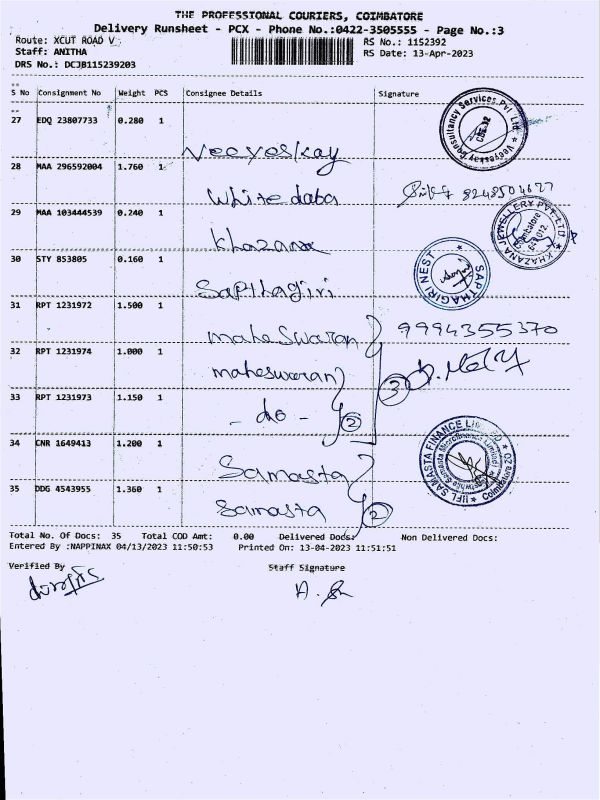 THE PROFESSIONAL COURIERS, COIMBATORE
Delivery Runsheet - PCX - Phone No.:0422-3505555 - Page No.:3
Route: XCUT ROAD V
RS No.: 1152392
Staff: ANITHA
RS Date: 13-Apr-2023
DRS No.: DCJB115239203
S No Consignment No Weight PCS Consignee Details Signature
27 EDQ 23807733 0.280 1
Veeyeskay
28 MAA 296592004 1.760 1
White daba 8248504627
29 MAA 103444539 0.240 1
Khazana
KHAZANA JEWELLERY PVT. LTD
Coimbatore
641 012
30 STY 853805 0.160 1
Sapthagiri
SAPTHAGIRI NEST
31 RPT 1231972 1.500 1
maheswaran 9994355370
32 RPT 1231974 1.000 1
maheswaran
3
33 RPT 1231973 1.150 1
- do - 2
34 CNR 1649413 1.200 1
Samasta
IIFL SAMASTA FINANCE LIMITED
35 DDG 4543955 1.360 1
Samasta 2
Total No. Of Docs: 35 Total COD Amt: 0.00 Delivered Docs: Non Delivered Docs:
Entered By :NAPPINAX 04/13/2023 11:50:53 Printed On: 13-04-2023 11:51:51
Verified By Staff Signature